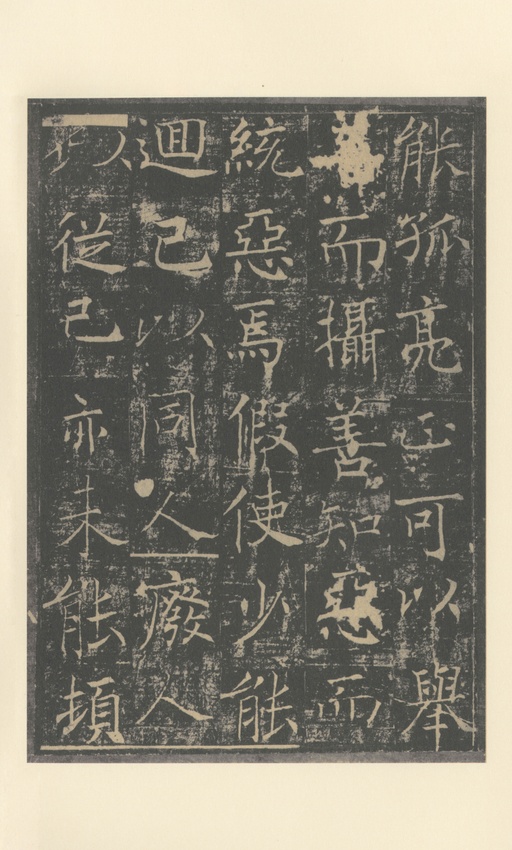 能孤亮正可以舉
善而攝善知惡而
統惡焉假使少能
迴己以同人廢人
以從己亦未能頓